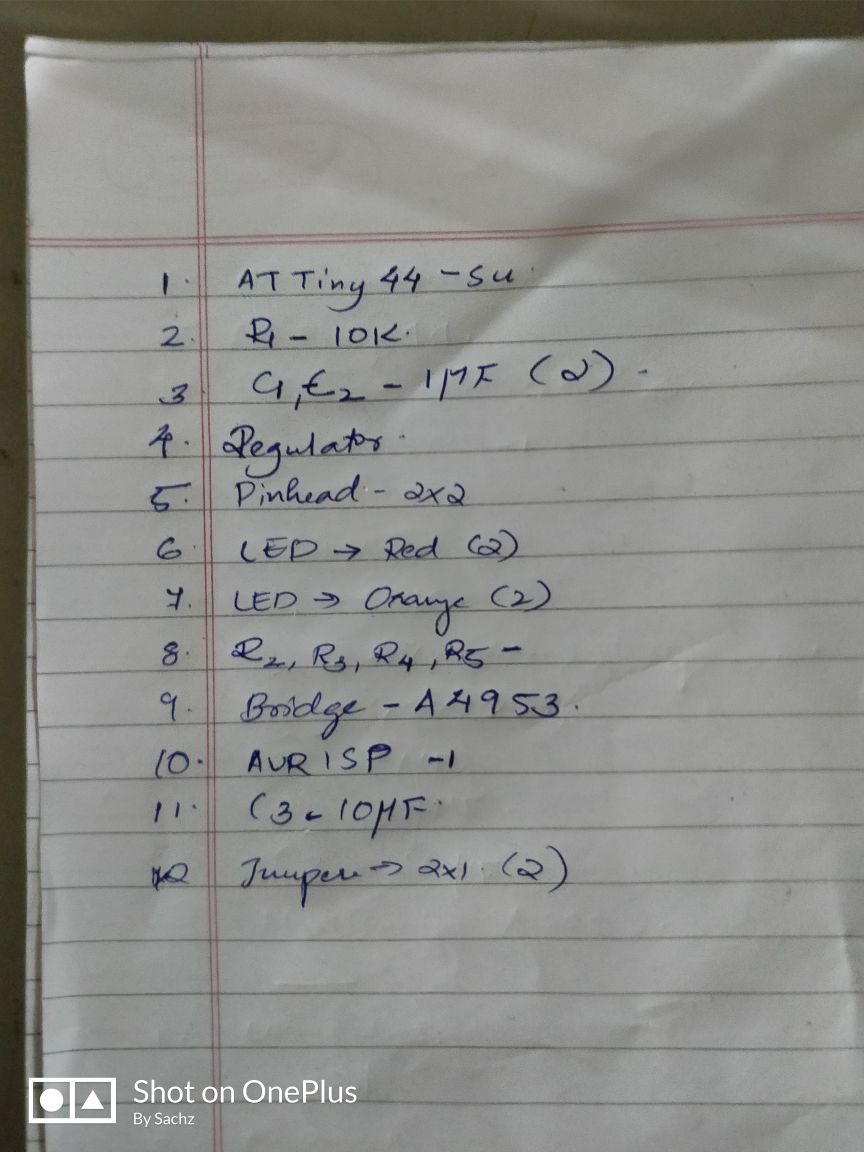 1. AT Tiny 44 - SU.
2. R1 - 10K.
3 C1, C2 - 1µF (2) -
4. Regulator.
5. Pinhead - 2x2
6. LED → Red (2)
7. LED → Orange (2)
8. R2, R3, R4, R5 -
9. Bridge - A4953.
10. AVR ISP -1
11. C3 - 10µF.
12 Jumper → 2x1. (2)
Shot on OnePlus
By Sachz